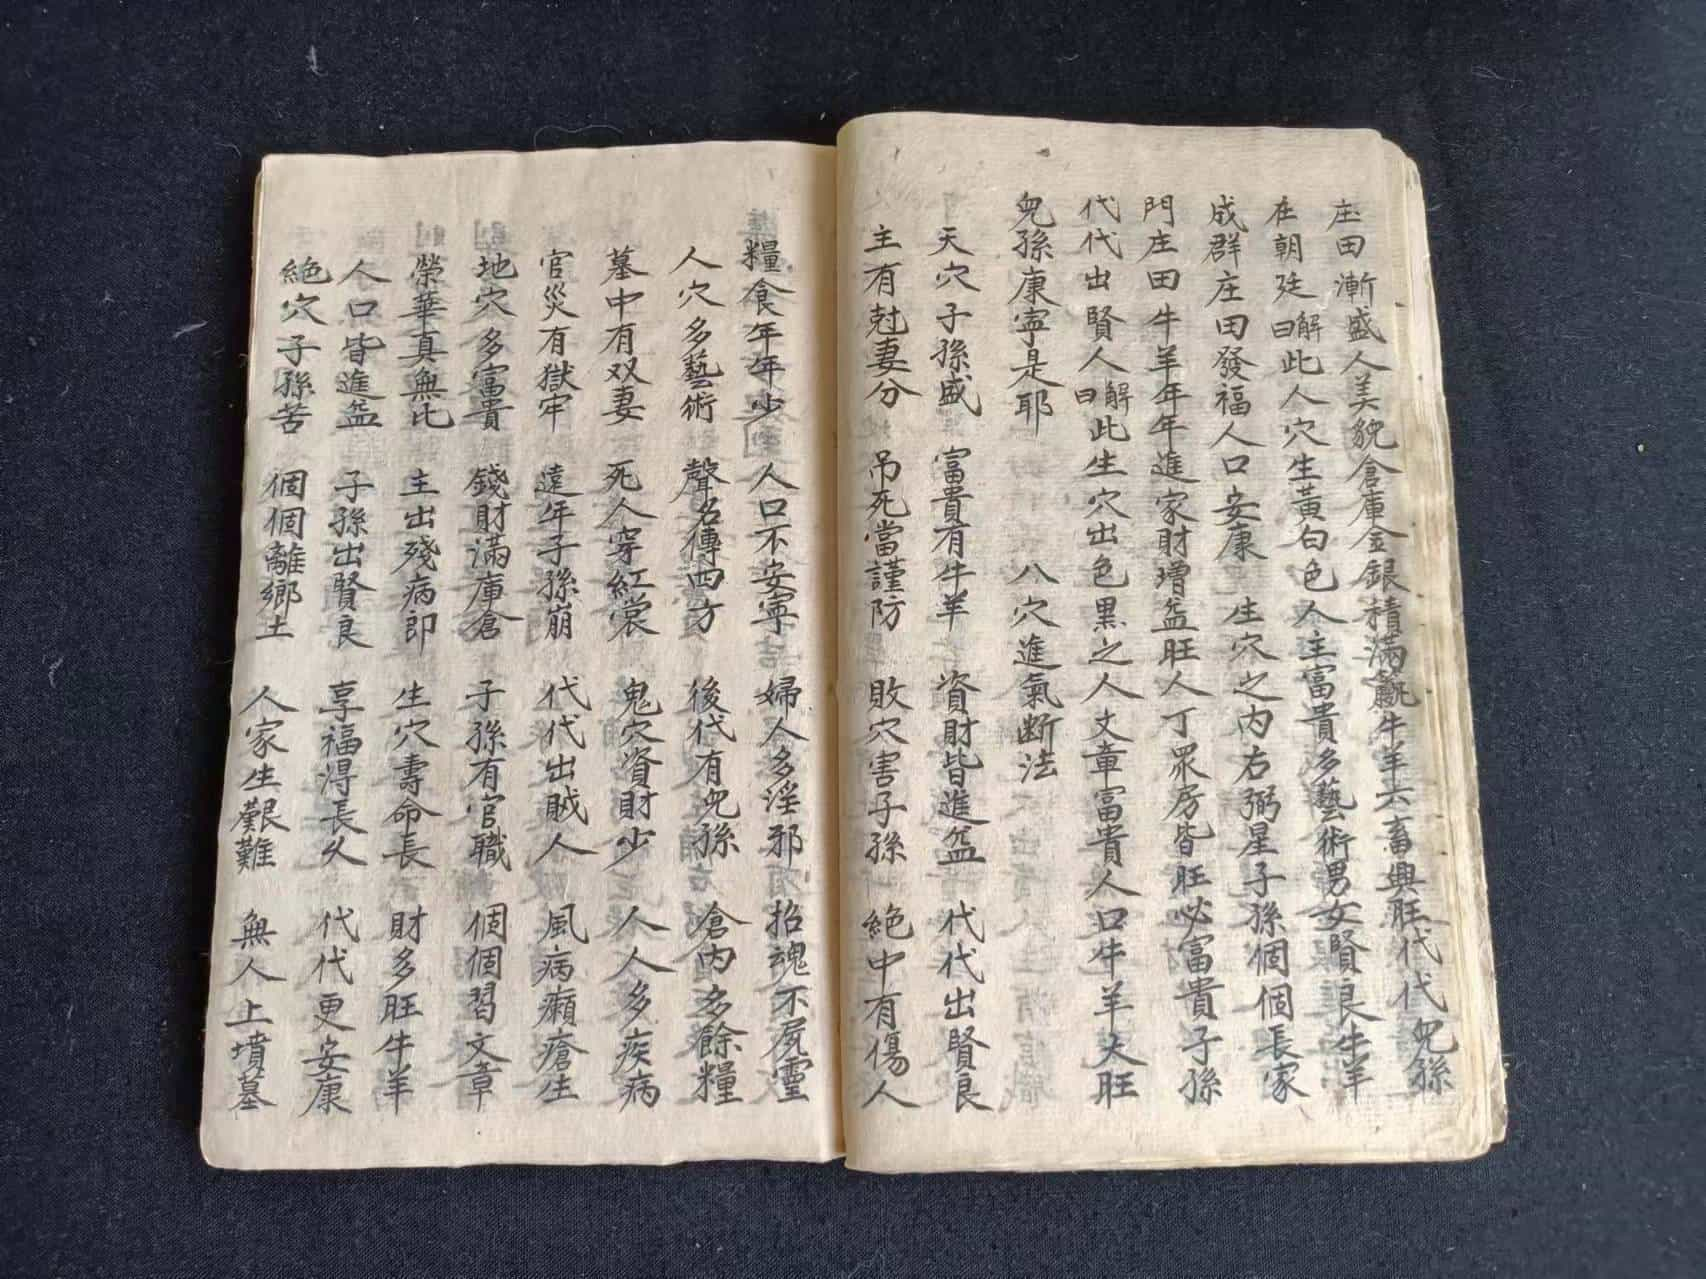 庄田漸盛人美貌倉庫金銀積滿甌牛羊六畜興旺代代兒孫
在朝廷解曰此人穴生黃白色人主富貴多藝術男女賢良牛羊
成群庄田發福人口安康 生穴之內右弼星子孫個個長家
門庄田牛羊年年進家財增益旺人丁眾房皆旺必富貴子孫
代代出賢人解曰此生穴出色黑之人文章富貴人口牛羊大旺
兒孫康寧是耶 八穴進氣斷法
天穴子孫盛 富貴有牛羊 資財皆進益 代代出賢良
主有尅妻分 吊死當謹防 敗穴害子孫 絕中有傷人
糧食年年少 人口不安寧 婦人多淫邪 招魂不屍靈
人穴多藝術 聲名傳四方 後代有兒孫 倉內多餘糧
墓中有双妻 死人穿紅裳 鬼穴資財少 人人多疾病
官災有獄牢 遠年子孫崩 代代出賊人 風病癩瘡生
地穴多富貴 錢財滿庫倉 子孫有官職 個個習文章
榮華真無比 主出殘病郎 生穴壽命長 財多旺牛羊
人口皆進益 子孫出賢良 享福得長久 代代更安康
絕穴子孫苦 個個離鄉土 人家生艱難 無人上墳墓